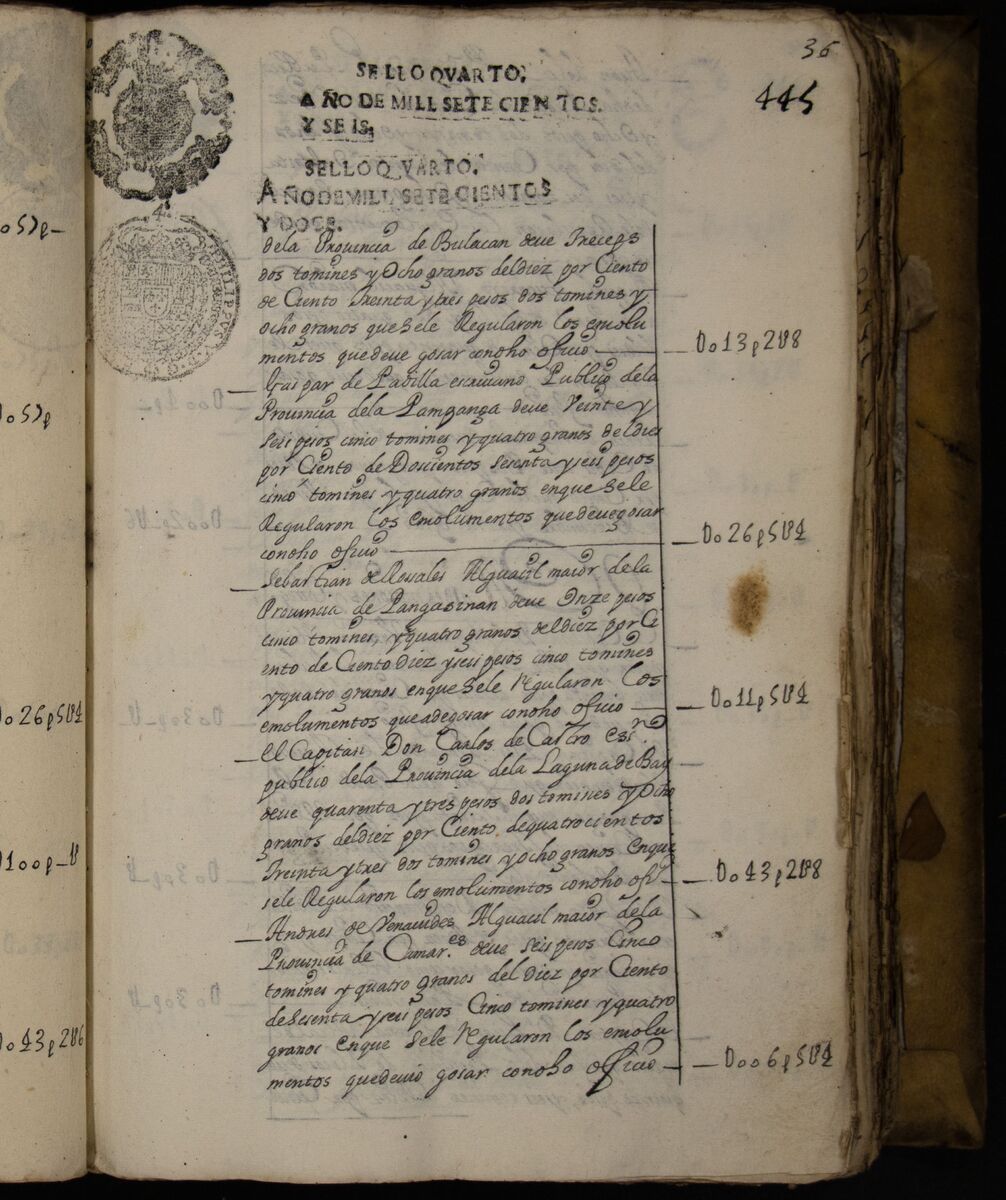 36
445
SELLO QVARTO,
AÑO DE MILL SETECIENTOS.
Y SEIS,
SELLO QVARTO,
AÑO DE MILL SETECIENTOS
Y DOCE.
4.
PHILIPPVS
dela Provincia de Bulacan deve Treceps
dos tomines y Ocho granos deldiez por Ciento
de Ciento Treinta y tres pesos dos tomines y
ocho granos que sele Regularon los emolu
mentos quedeve gosar condho oficio Do13p2U8
Gaspar de Padilla escrivano Publico dela
Provincia dela Pampanga deve Veinte y
seis pesos cinco tomines y quatro granos deldies
por Ciento de Doscientos sesenta y seis pesos
cinco tomines y quatro granos enque sele
Regularon los emolumentos quedevegosar
condho oficio Do26p5U4
Sebastian deRosales Alguacil maior dela
Provincia de Pangasinan deve Onze pesos
cinco tomines, y quatro granos deldiez por Ci
ento de Ciento Diez y seis pesos cinco tomines
y quatro granos enque sele Regularon los
emolumentos queadegosar condho oficio Do11p5U4
el Capitan Don Carlos de Castro Essno
publico dela Provincia dela Laguna de Bay
deve quarenta y tres pesos dos tomines y Ocho
granos deldiez por Ciento dequatrocientos
Treinta y tres dos tomines y ocho granos enque
sele Regularon los emolumentos condho ofio Do43p2U8
Andres de Venavides Alguacil maior dela
Provincia de Camar.es deve seis pesos Cinco
tomines y quatro granos del Diez por Ciento
desesenta y seis pesos Cinco tomines y quatro
granos enque sele Regularon los emolu
mentos quedevio gosar condho oficio Doo6p5U4
o57p
Do57p
Do26p5U4
D100p_U
Do43p2U6